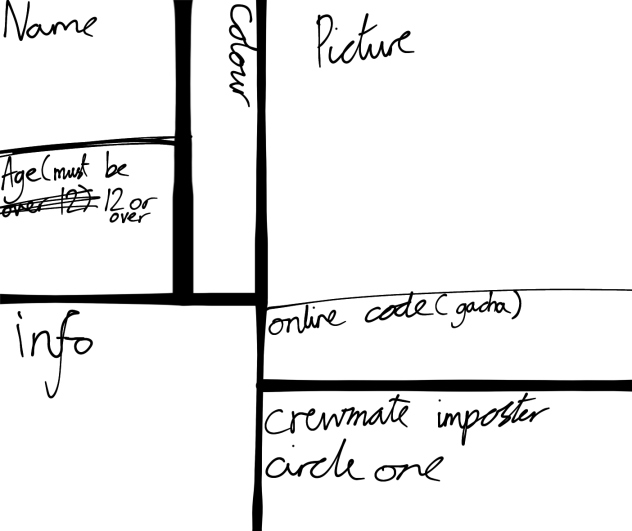 Name
Colour
Picture
Age (must be
over 12) 12 or
over
info
online code (gacha)
crewmate imposter
circle one